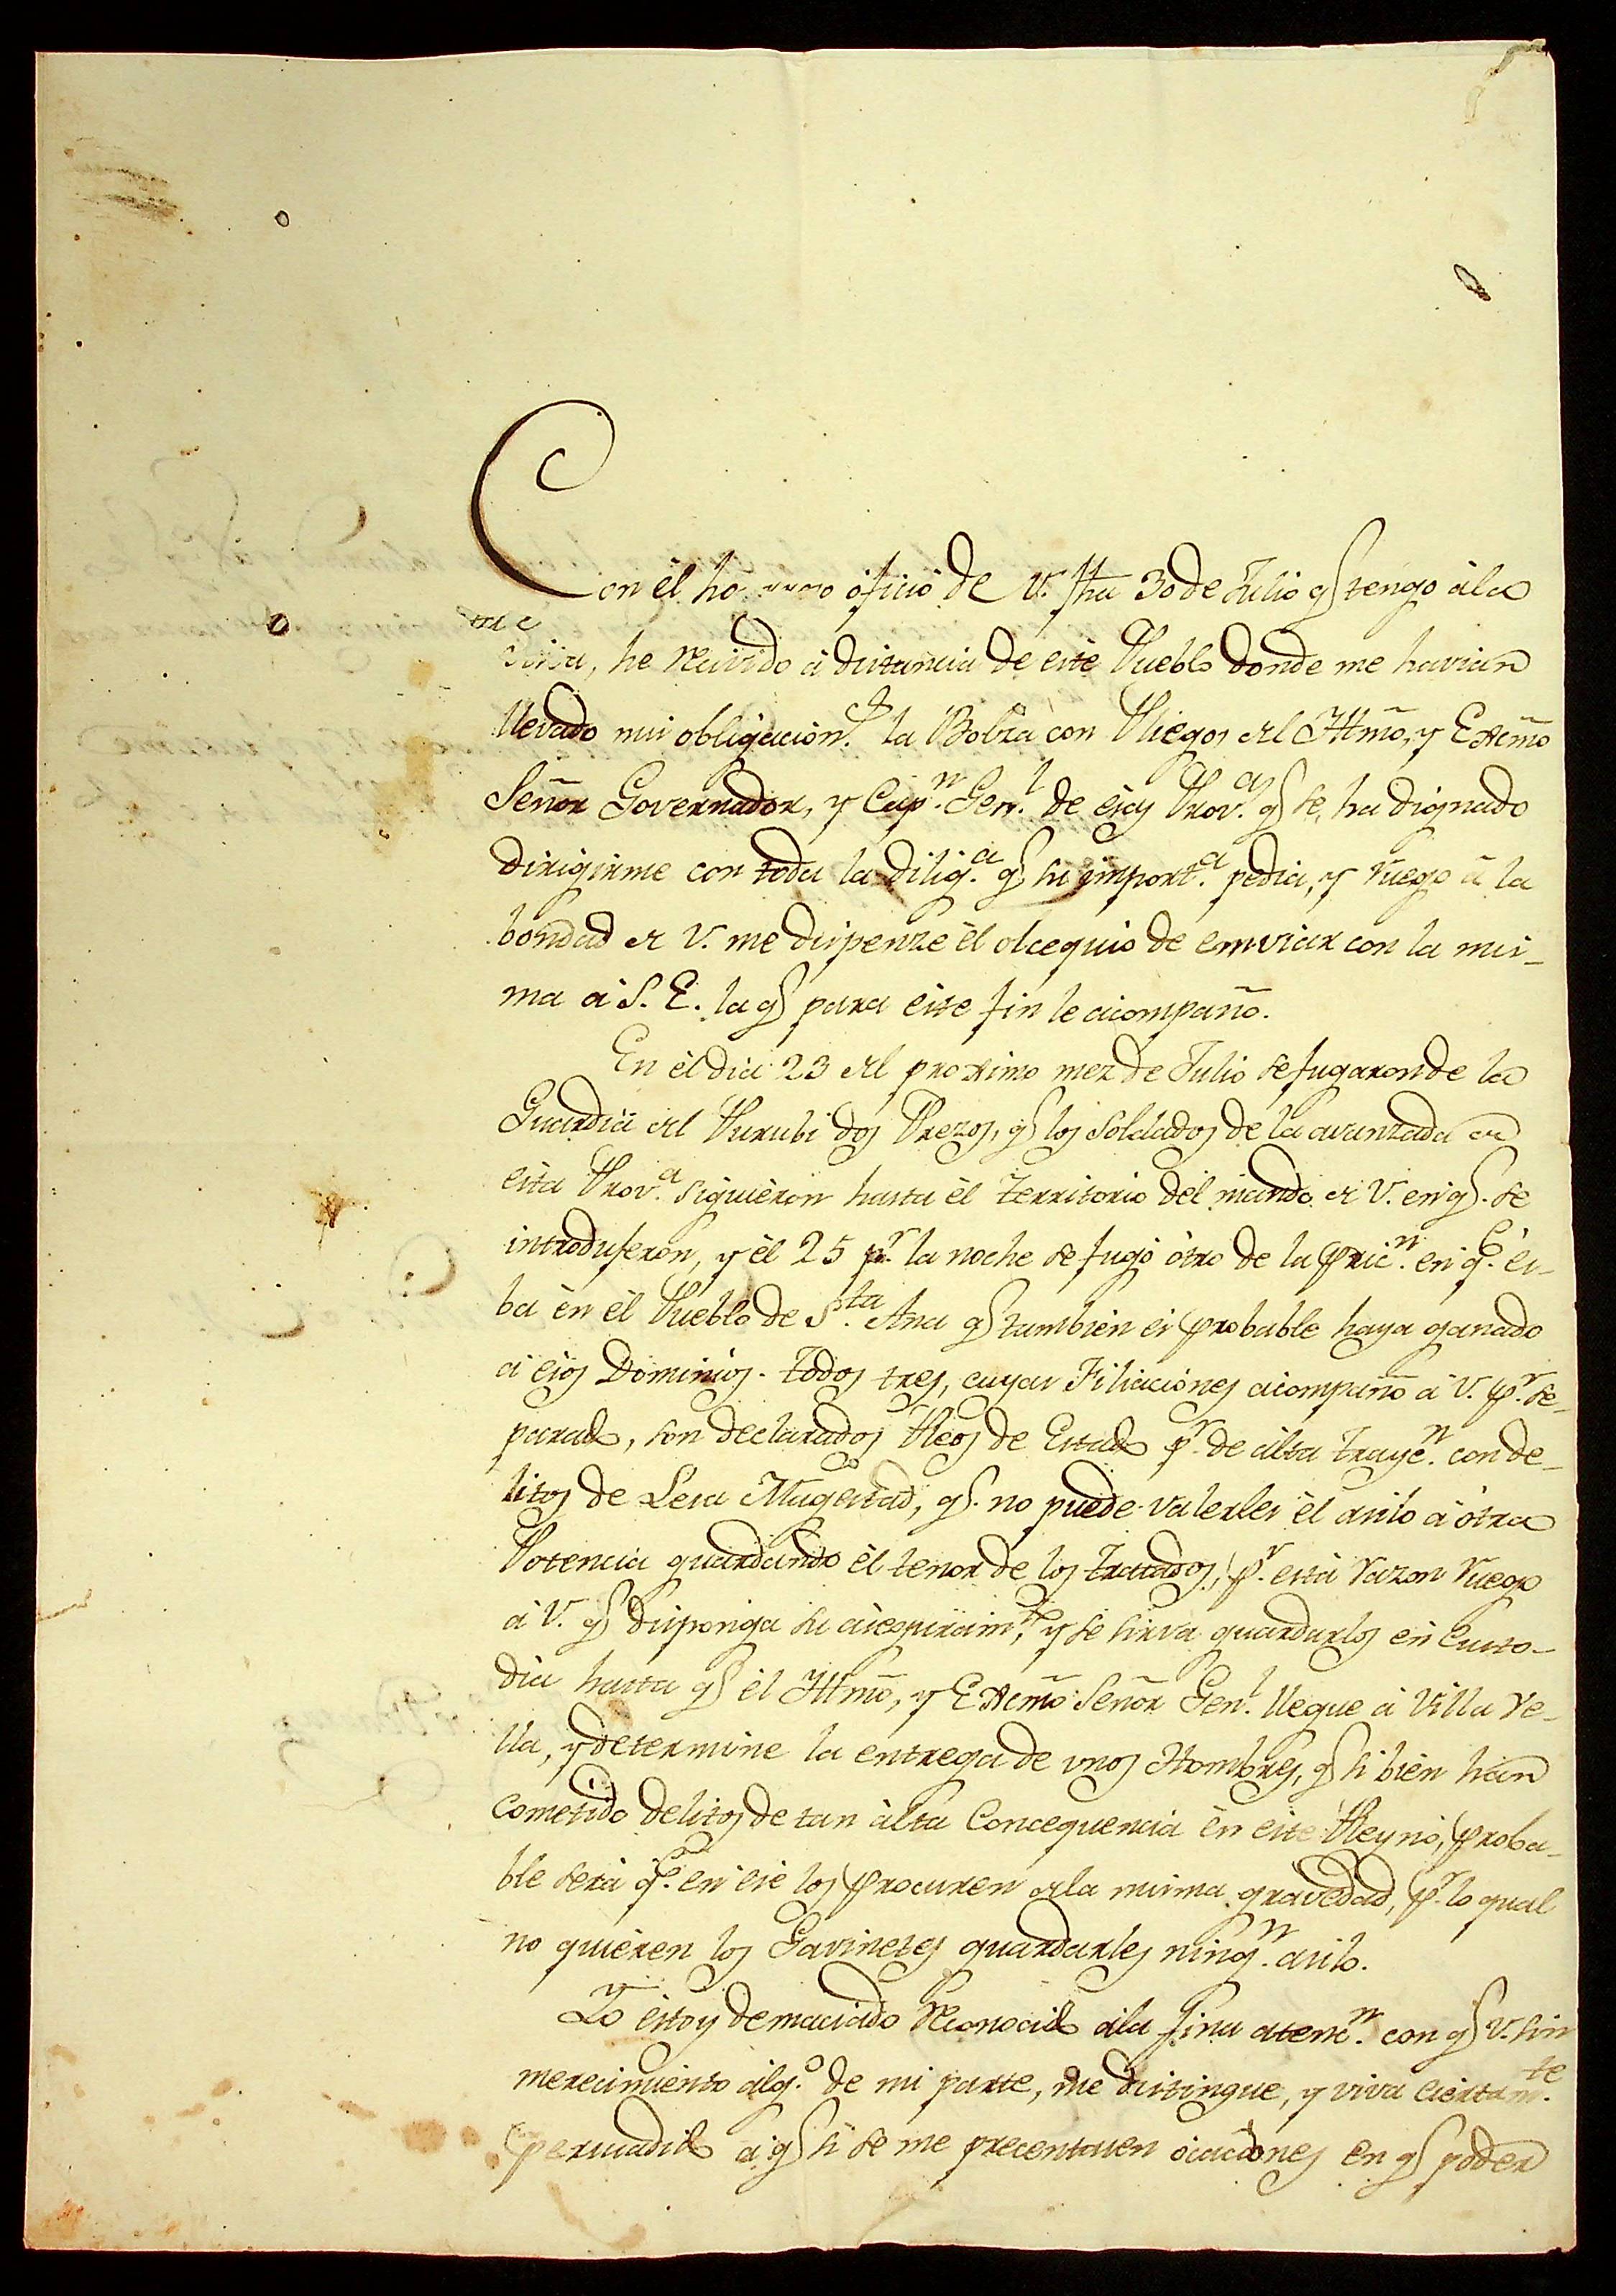 Con èl oficio de V. fħa 30 de Julio q̃ tengo àla
he recivido à distancia de este Pueblo donde me havian
llevado mis obligacion.ˢ la Bolsa con Pliegos del Illmõ, y Excmõ
Señor Governador, y Cap.ⁿ Gen.ˡ de esas Prov.ᵃˢ q̃ se ha dignado
dirigirme con toda la dilig.ᵃ q̃ su import.ᵃ pedia, y ruego à la
bondad de V. me dispense èl obcequio de emviar con la mis-
ma à S. E. la q̃ para este fin le acompaño.
En èl dia 23 del proximo mez de Julio se fugaron de la
Guardia del Purubi dos Prezos, q̃ los Soldados de la avanzada de
esta Prov.ᵃ siguièron hasta èl Territorio del mando de V. en q̃. se
introduseron, y èl 25 p.ʳ la noche se fugò òtro de la pric.ⁿ en q.ᵉ es-
ba èn èl Pueblo de S.ᵗᵃ Ana q̃ tambien es probable haya ganado
à esos Dominios. Todos tres, cuyas Filiaciònes acompaño à V. p.ʳ se-
parado, son declarados Reos de Estado p.ʳ de àlta trayc.ⁿ con de-
litos de Lesa Magestad, q̃. no puede valerles èl asilo à òtra
Potencia guardando èl tenor de los tratados, p.ʳ esta razon ruego
à V. q̃ disponga su aseguram.ᵗᵒ, y se sirva guardarlos en Custo-
dia hasta q̃ èl Illmõ, y Excmõ Señor Gen.ˡ llegue à Villa Ve-
lla, y determine la entrega de unos Hombres, q̃ si bièn han
cometido delitos de tan àlta Concequencia èn este Reyno, proba-
ble serà q.ᵉ en ese los procuren de la misma gravedad, p.ʳ lo qual
no quièren los Gavinetes guardarles ning.ⁿ asilo.
Yo èstoy demaciado reconocido àla fina atenc.ⁿ con q̃ V. sin
merecimiento alg.ᵒ de mi parte, me distingue, y viva ciertam.ᵗᵉ
persuadido à q̃ si se me precentasen ocaciònes en q̃ poder